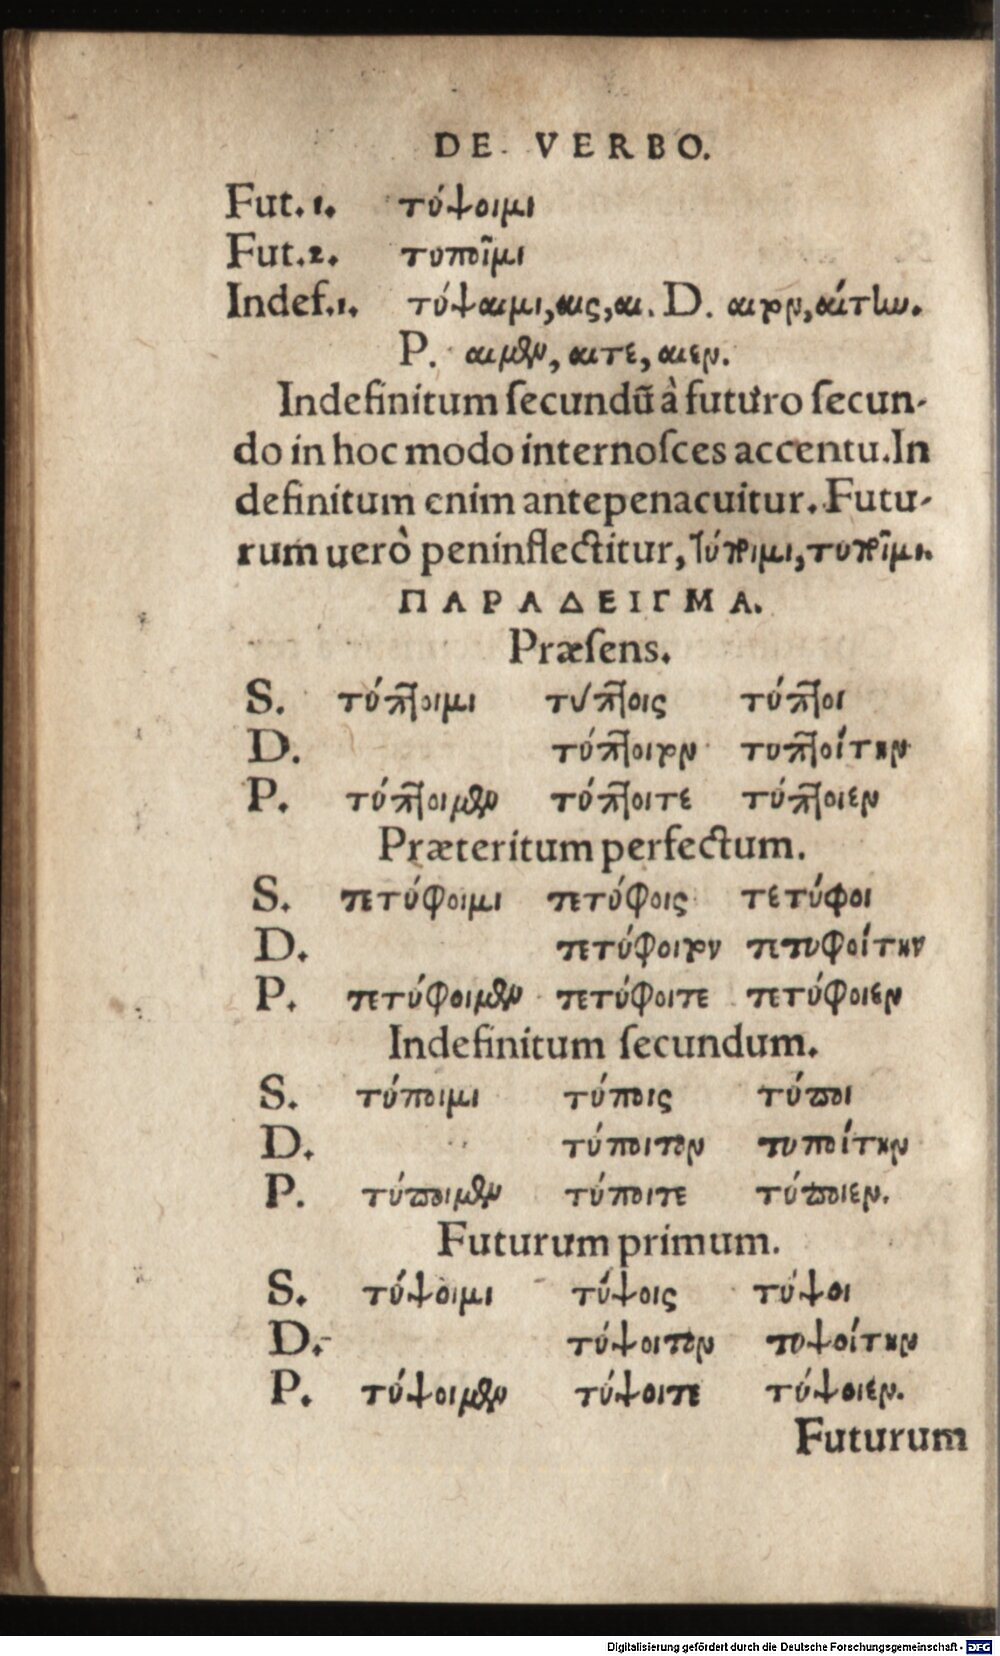 DE VERBO.
Fut. 1. τύψοιμι
Fut. 2. τυποῖμι
Indef. 1. τύψαιμι, αις, αι. D. αιτον, αίτην.
P. αιμεν, αιτε, αιεν.
Indefinitum ſecundũ à futuro ſecun-
do in hoc modo internoſces accentu. In
definitum enim antepenacuitur. Futu-
rum uerò peninflectitur, τύποιμι, τυποῖμι.
ΠΑΡΑΔΕΙΓΜΑ.
Præſens.
S. τύπτοιμι τύπτοις τύπτοι
D. τύπτοιτον τυπτοίτην
P. τύπτοιμεν τύπτοιτε τύπτοιεν
Præteritum perfectum.
S. τετύφοιμι τετύφοις τετύφοι
D. τετύφοιτον τετυφοίτην
P. τετύφοιμεν τετύφοιτε τετύφοιεν
Indefinitum ſecundum.
S. τύποιμι τύποις τύποι
D. τύποιτον τυποίτην
P. τύποιμεν τύποιτε τύποιεν.
Futurum primum.
S. τύψοιμι τύψοις τύψοι
D. τύψοιτον τυψοίτην
P. τύψοιμεν τύψοιτε τύψοιεν.
Futurum
Digitalisierung gefördert durch die Deutsche Forschungsgemeinschaft - DFG